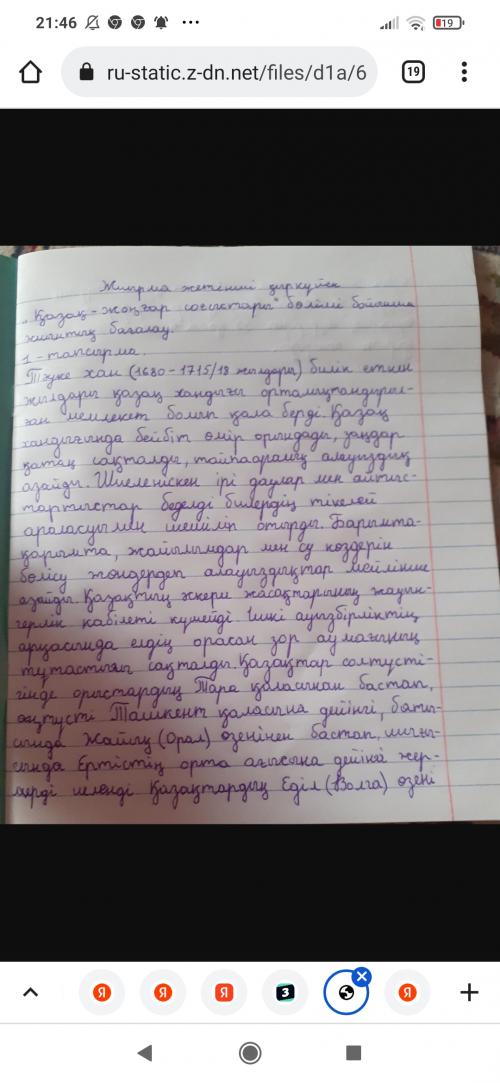 21:46
19
ru-static.z-dn.net/files/d1a/6
19
Жиырма жетінші қыркүйек
„Қазақ - жоңғар соғыстары" бөлімі бойынша
жиынтық бағалау.
1 - тапсырма.
Тәуке хан (1680 - 1715/18 жылдары) билік еткен
жылдары қазақ хандығы орталықтандырыл-
ған мемлекет болып қала берді. Қазақ
хандығында бейбіт өмір орындады, заңдар
қатаң сақталды, тайпааралық алауыздық
азайды. Шиеленіскен ірі даулар мен айтыс-
тартыстар беделді билердің тікелей
араласуымен шешіліп отырды. Барымта-
қарымта, жайылымдар мен су көздерін
бөлісу жөндердеп алауыздықтар мейлінше
азайды. Қазақтың әскери жасақтарының жауын-
герлік қабілеті күшейді. Ішкі ауызбірліктің
арқасында елдің орасан зор аумағының
тұтастығы сақталды. Қазақтар солтүсті-
гінде орыстардың Тара қаласынан бастап,
оңтүсті Ташкент қаласына дейінгі, баты-
сында Жайық (Орал) өзенінен бастап, шығы-
сында Ертістің орта ағысына дейінә жер-
лерді иеленді Қазақтардың Еділ (Волга) өзені
Я
Я
Я
З
Я